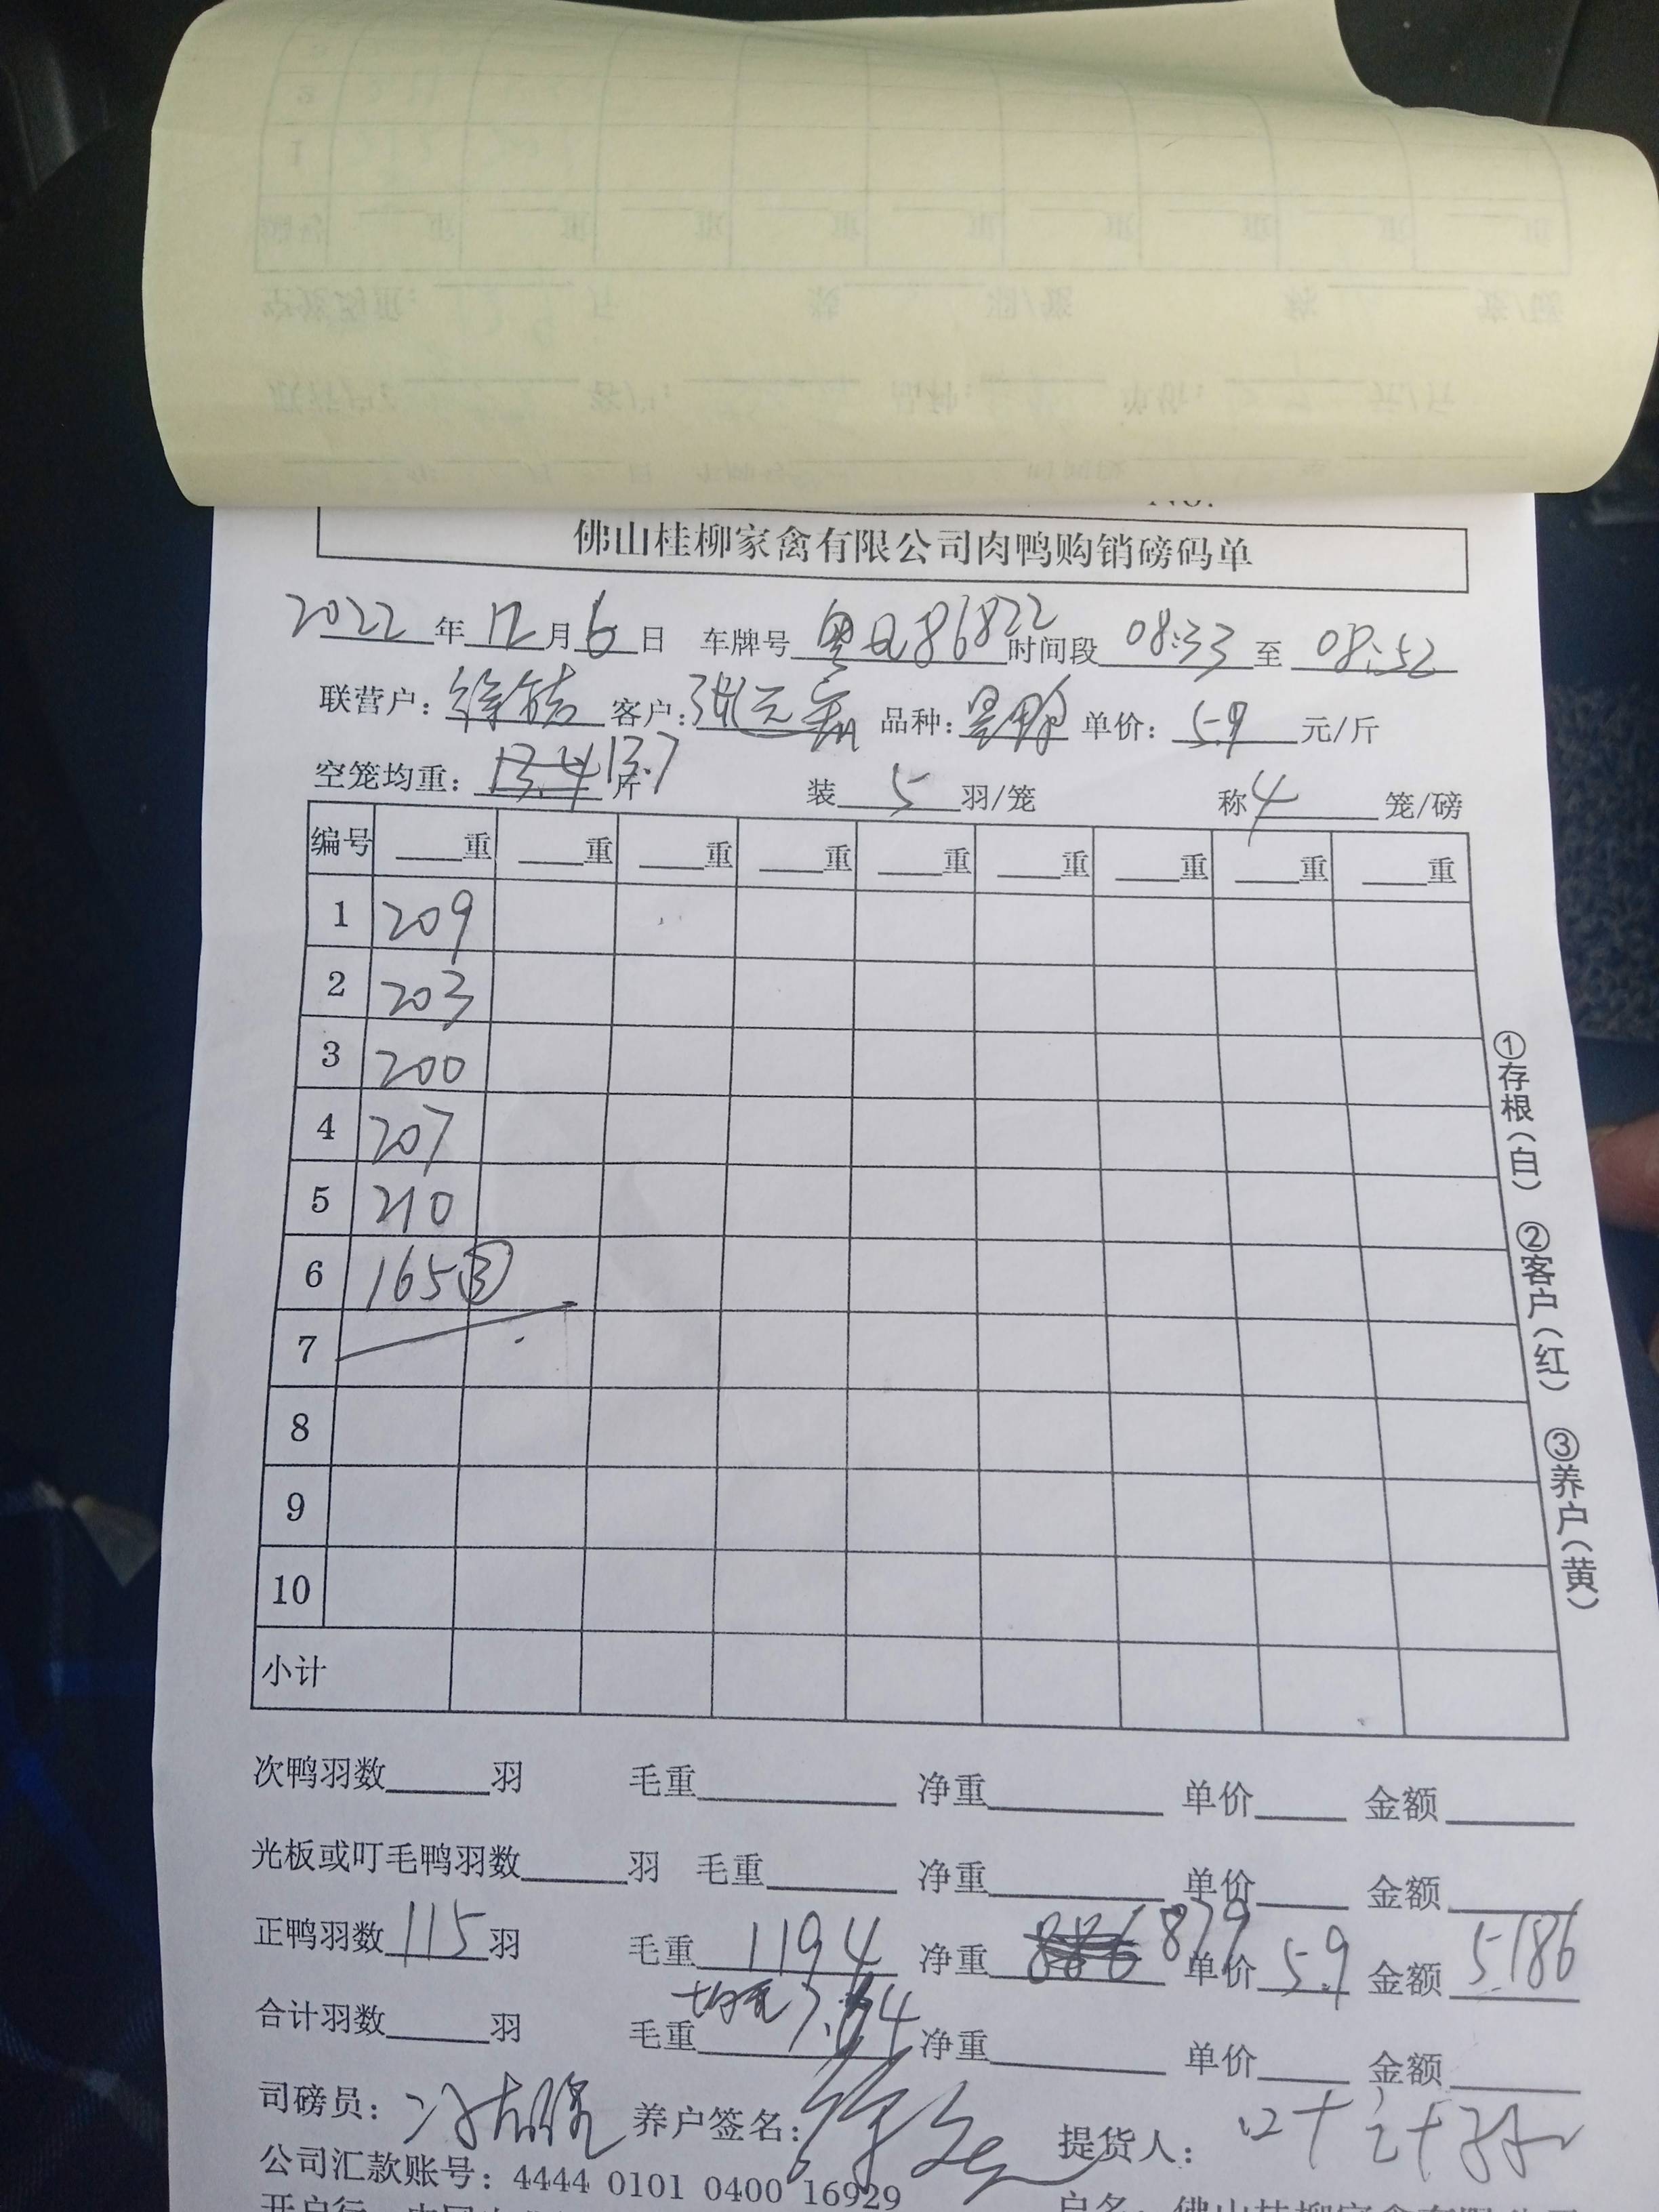 佛山桂柳家禽有限公司肉鸭购销磅码单
2022年12月6日 车牌号 粤 86822 时间段 08:33 至 08:52
联营户: 客户: 张元 品种: 单价: 5.9 元/斤
空笼均重: 13.4 13.7 斤 装 5 羽/笼 称 4 笼/磅
编号 重 重 重 重 重 重 重 重 重
1 209
2 203
3 200
4 207
5 210
6 165③
7
8
9
10
小计
①存根(白) ②客户(红) ③养户(黄)
次鸭羽数 羽 毛重 净重 单价 金额
光板或叮毛鸭羽数 羽 毛重 净重 单价 金额
正鸭羽数 115 羽 毛重 1194 净重 886 879 单价 5.9 金额 5186
均重 7.64
合计羽数 羽 毛重 净重 单价 金额
司磅员: 养户签名: 提货人:
公司汇款账号: 4444 0101 0400 16929